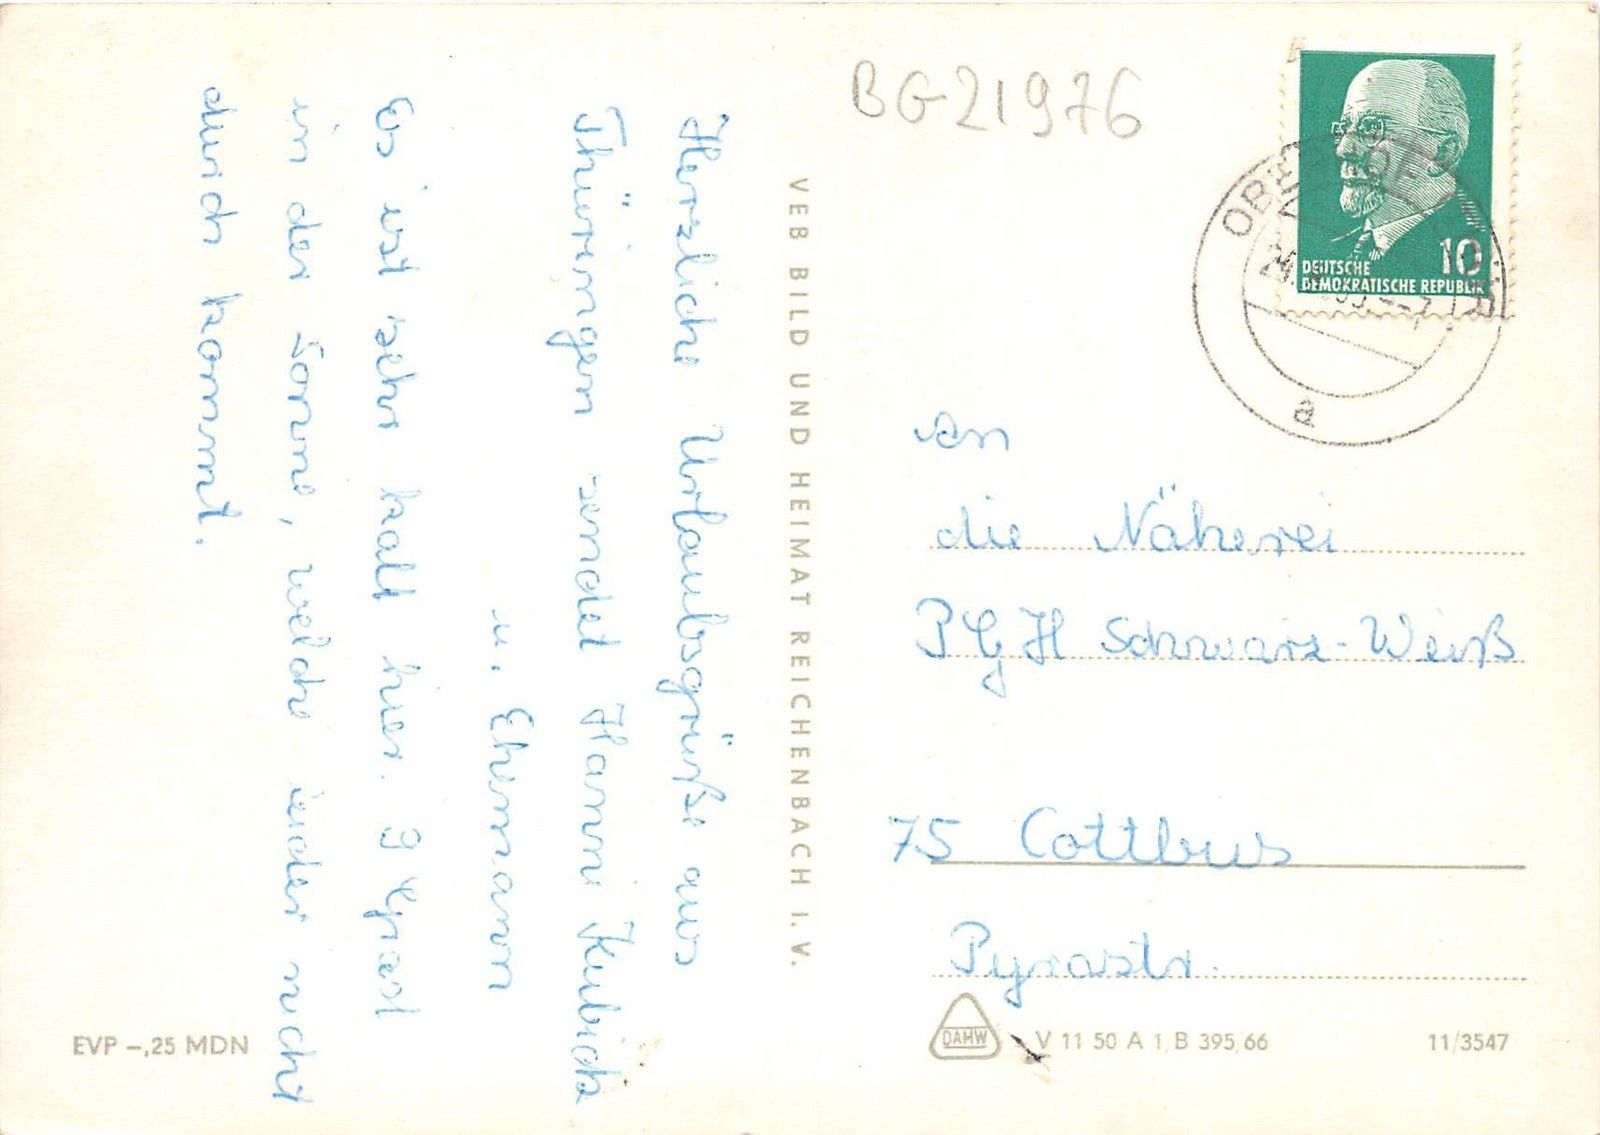 Herzliche Urlaubsgrüße aus
Thüringen sendet Hanni Kubick
u. Ehemann
Es ist sehr kalt hier. 9 Grad
in der Sonne, welche leider nicht
durch kommt.
VEB BILD UND HEIMAT REICHENBACH I. V.
BG21976
10
DEUTSCHE
DEMOKRATISCHE REPUBLIK
a
An
die Näherei
PGH Schwarz-Weiß
75 Cottbus
Pyrastr.
EVP –,25 MDN
DAMW
V 11 50 A 1, B 395/66
11/3547